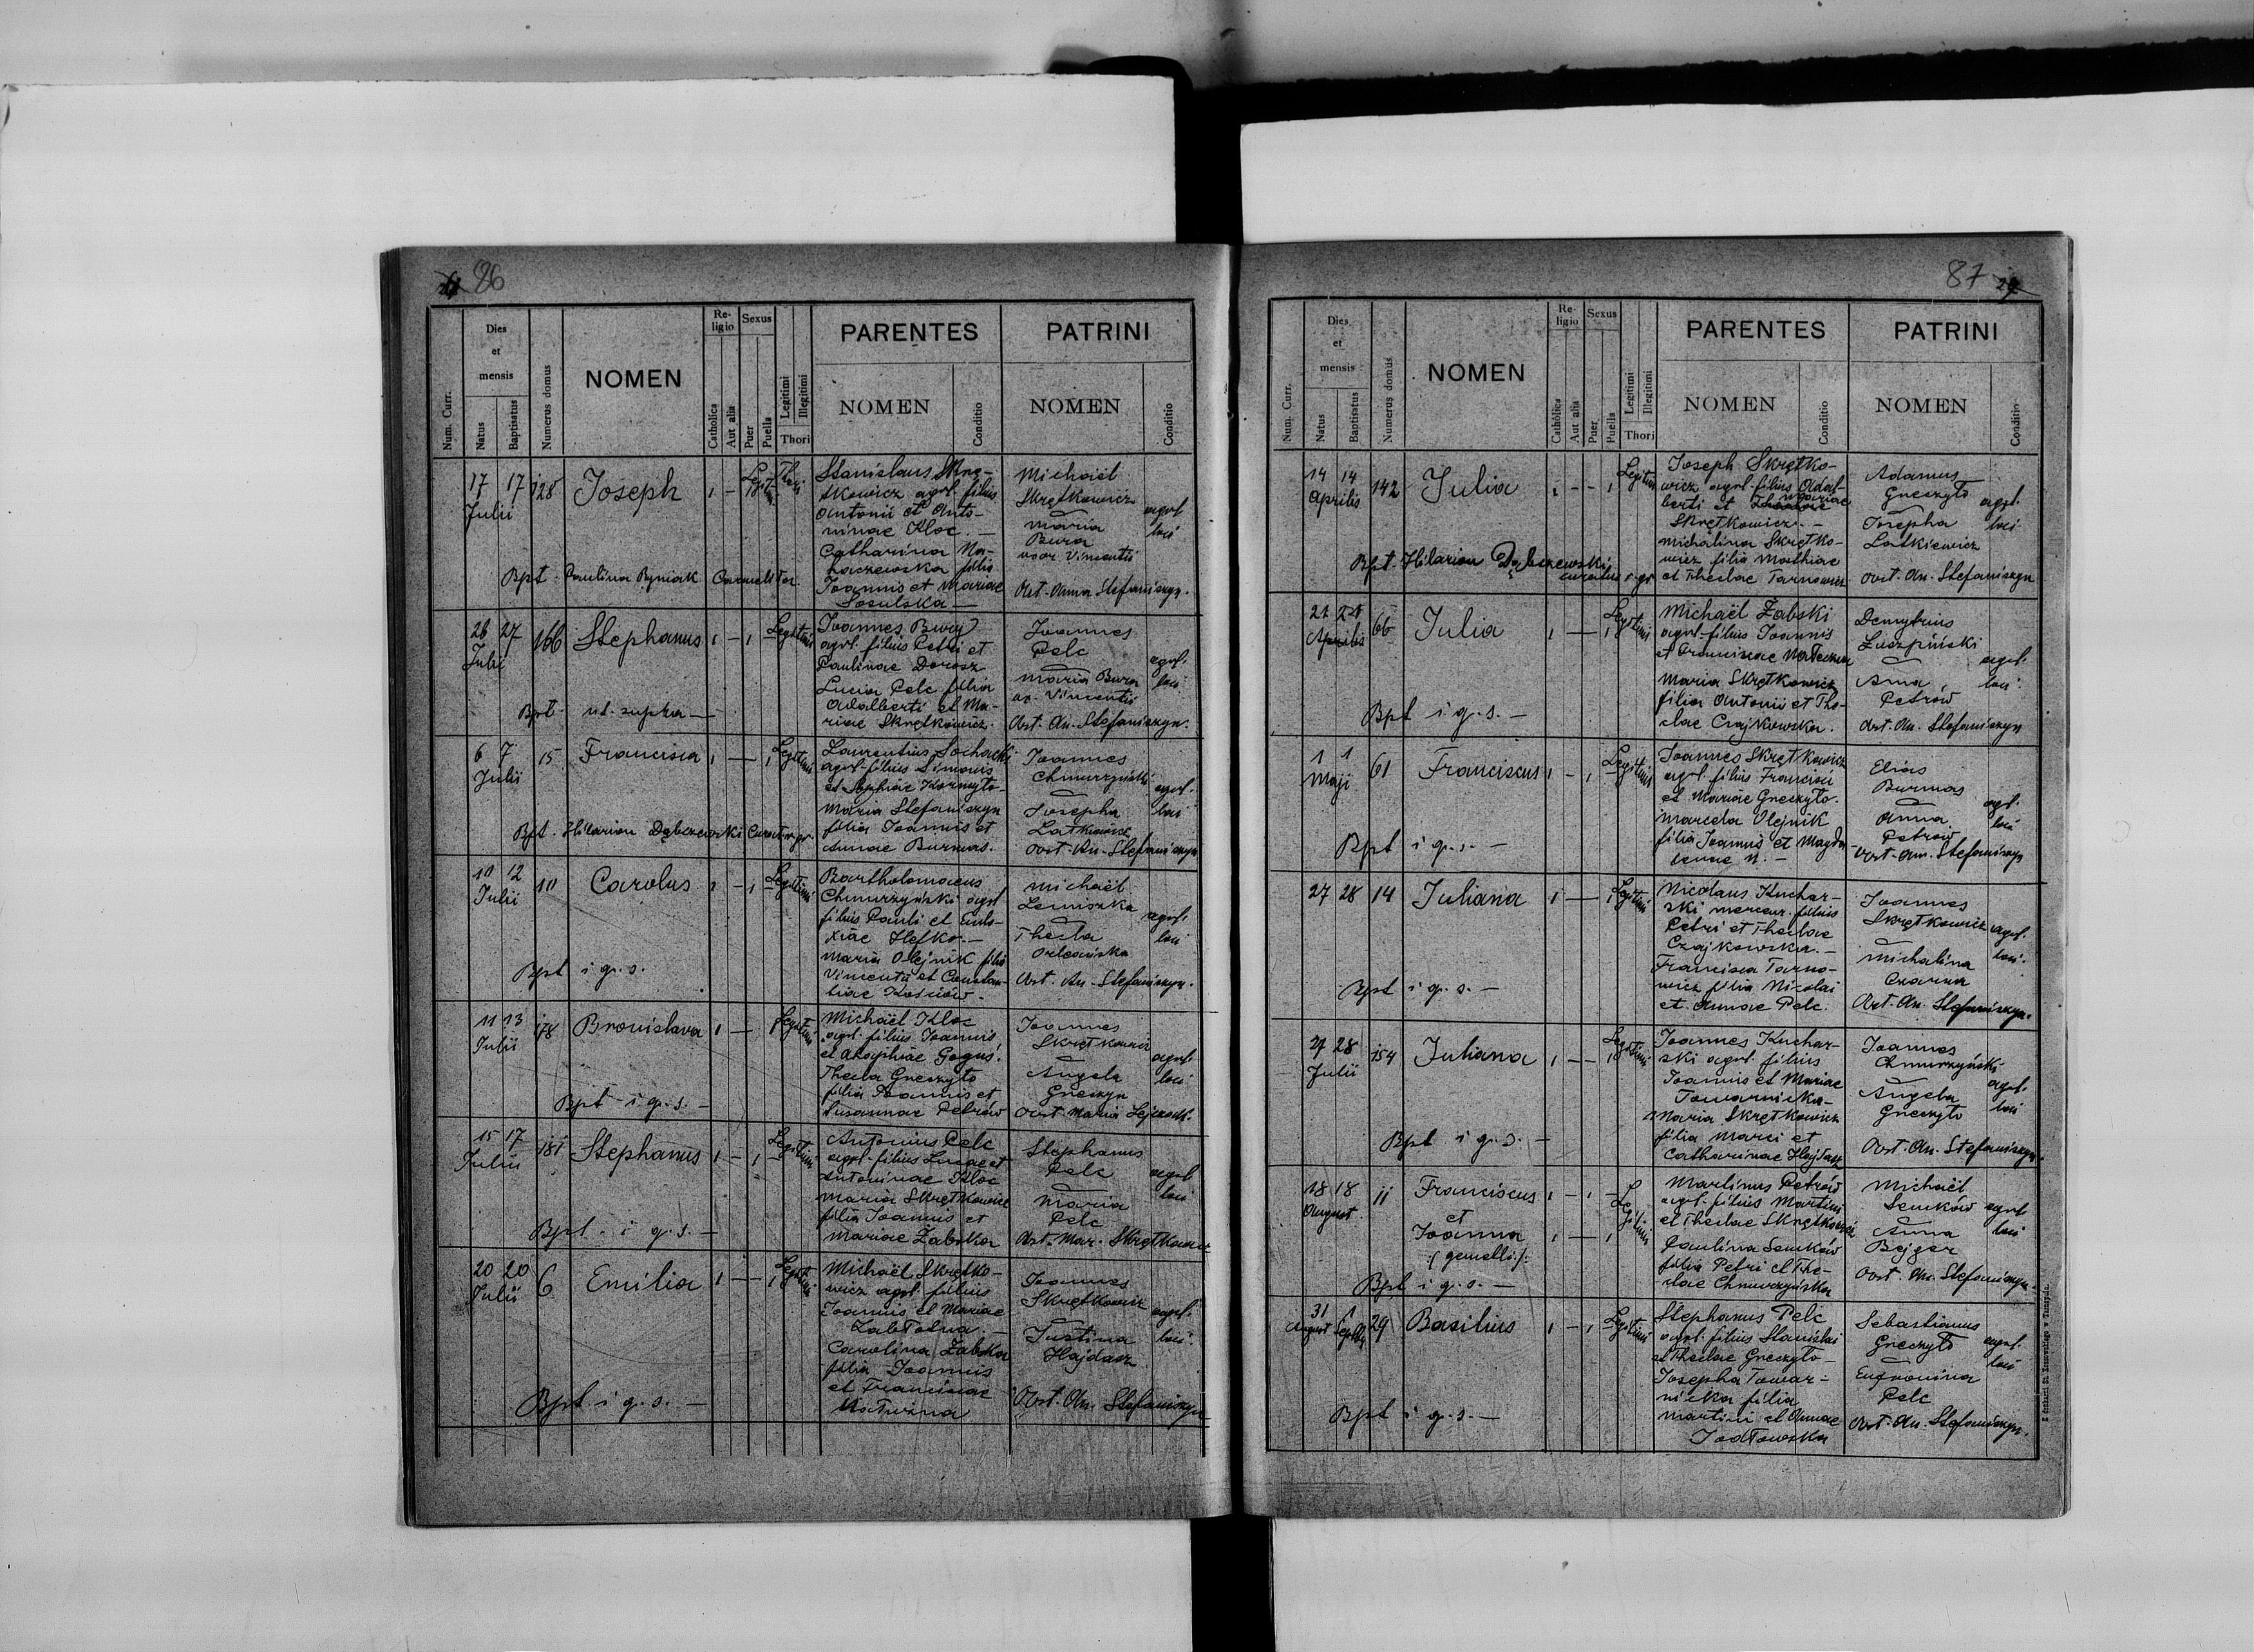 86
Num. Curr.
Dies et mensis
Natus
Baptisatus
Numerus domus
NOMEN
Religio
Catholica
Aut alia
Sexus
Puer
Puella
Legitimi
Illegitimi
Thori
PARENTES
NOMEN
Conditio
PATRINI
NOMEN
Conditio
17 17 128 Joseph 1 – 1 Legitimi Thori
Julii
Stanislaus Skrę-
tkowicz agrl. filius
Antonii et Anto-
ninae Kloc. –
Catharina Ma-
filia
Joannis et Mariae
Sosulska –
Michaël
Skrętkowicz
Maria
Bura
uxor Vincentii
agrl.
loci
Obst. Anna Stefaniszyn.
Bpt. Paulina Byniak
26 27 166 Stephanus 1 – 1 Legitimi
Julii
Joannes Buraj
agrl. filius Petri et
Paulinae Dorosz
Lucia Pelc filia
Adalberti et Ma-
riae Skrętkowicz.
Joannes
Pelc
Maria Bura
ux. Vincentii
agrl.
loci
Obst. An. Stefaniszyn.
Bpt. ut. supra –
6 7 15 Francisca 1 – 1 Legitimi
Julii
Laurentius Sochacki
agrl. filius Simonis
et Sophiae Kormyto-
Maria Stefaniszyn
filia Joannis et
Annae Burmas.
Joannes
Chmurzyński
Josepha
Latkiewicz
agrl.
loci
Obst. An. Stefaniszyn
Bpt. Hilarion Dąbczewski Curatus r. gr.
10 12 10 Carolus 1 – 1 Legitimi
Julii
Bartholomaeus
Chmurzyński agrl
filius Pauli et Eudo-
xiae Hefko. –
Maria Olejnik filia
Vincentii et Constan-
tiae
Michaël
Lemiszka
Thecla
Orleańska
agrl.
loci
Obst. An. Stefaniszyn.
Bpt i q. s.
11 13 178 Bronislava 1 – 1 Legitimi
Julii
Michaël Kloc
agrl. filius Joannis
et Agaphiae Goguś.
Thecla Greczyło
filia Joannis et
Susannae Petrów
Joannes
Skrętkowicz
Angela
Greczyn
agrl.
loci
Obst. Maria
Bpt – i q. s. –
15 17 181 Stephanus 1 – 1 Legitimi
Julii
Antonius Pelc
agrl. filius Lucae et
Antoninae Kloc
Maria Skrętkowicz
filia Joannis et
Mariae Żabska
Stephanus
Pelc
Maria
Pelc
agrl
loci
Obst. Mar. Skrętkowicz
Bpt. i q. s. –
20 20 6 Emilia 1 – – 1 Legitimi
Julii
Michaël Skrętko-
wicz agrl. filius
Joannis et Mariae
Zabłotna. –
Carolina Żabska
filia Joannis
et Franciscae
Joannes
Skrętkowicz
Justina
Hajdasz
agrl.
loci
Obst. An. Stefaniszyn
Bpt. i q. s. –
87
Num. Curr.
Dies et mensis
Natus
Baptisatus
Numerus domus
NOMEN
Religio
Catholica
Aut alia
Sexus
Puer
Puella
Legitimi
Illegitimi
Thori
PARENTES
NOMEN
Conditio
PATRINI
NOMEN
Conditio
14 14 142 Julia 1 – – 1 Legitimi
Aprilis
Joseph Skrętko-
wicz agrl. filius Adal-
berti et Mariae
Skrętkowicz. –
Michalina Skrętko-
wicz filia Mathiae
et Theclae Tarnowicz
Adamus
Greczyło
Josepha
Latkiewicz
agrl.
loci
Obst. An. Stefaniszyn
Bpt. Hilarion Dąbczewski
curatus r. gr.
21 21 66 Julia 1 – 1 Legitimi
Aprilis
Michaël Żabski
agrl. filius Joannis
et Franciscae
Maria Skrętkowicz
filia Antonii et The-
clae Czajkowska.
Demytrius
Anna
Petrów
agrl.
loci.
Obst. An. Stefaniszyn
Bpt i q. s. –
1 1 61 Franciscus 1 – 1 Legitimi
Maji
Joannes Skrętkowicz
agrl. filius Francisci
et Mariae Greczyło.
Marcela Olejnik
filia Joannis et Magda
lenae N. –
Elias
Burmas
Anna
Petrów
agrl.
loci
Obst. An. Stefaniszyn
Bpt i q. s. –
27 28 14 Juliana 1 – 1 Legitimi
Nicolaus Kuchar-
ski mercenr. filius
Petri et Theclae
Czajkowska. –
Francisca Tarno-
wicz filia Nicolai
et Annae Pelc.
Joannes
Skrętkowicz
Michalina
Czarna
agrl.
loci.
Obst. An. Stefaniszyn.
Bpt i q. s. –
27 28 154 Juliana 1 – – 1 Legitimi
Julii
Joannes Kuchar-
ski agrl. filius
Joannis et Mariae
Towarnicka-
Maria Skrętkowicz
filia Marci et
Catharinae Hajdasz
Joannes
Chmurzyński
Angela
Greczyło
agrl.
loci
Obst. An. Stefaniszyn.
Bpt i q. s. –
18 18 11 Franciscus 1 – 1 – Legitimi
August.
et
Joanna 1 – 1
/: gemelli :/
Martinus Petrów
agrl. filius Martini
et Theclae Skrętkowicz
Paulina Senków
filia Petri et The-
clae Chmurzyńska
Michaël
Senków
Anna
Bejger
agrl
loci
Obst. An. Stefaniszyn.
Bpt i q. s. –
31 29 Basilius 1 – 1 Legitimi
August
Stephanus Pelc
agrl. filius Stanislai
et Theclae Greczyło –
Josepha Towar-
nicka filia
Martini et Annae
Jodłowska
Sebastianus
Greczyło
Eufronina
Pelc
agrl.
loci
Obst. An. Stefaniszyn.
Bpt i q. s. –